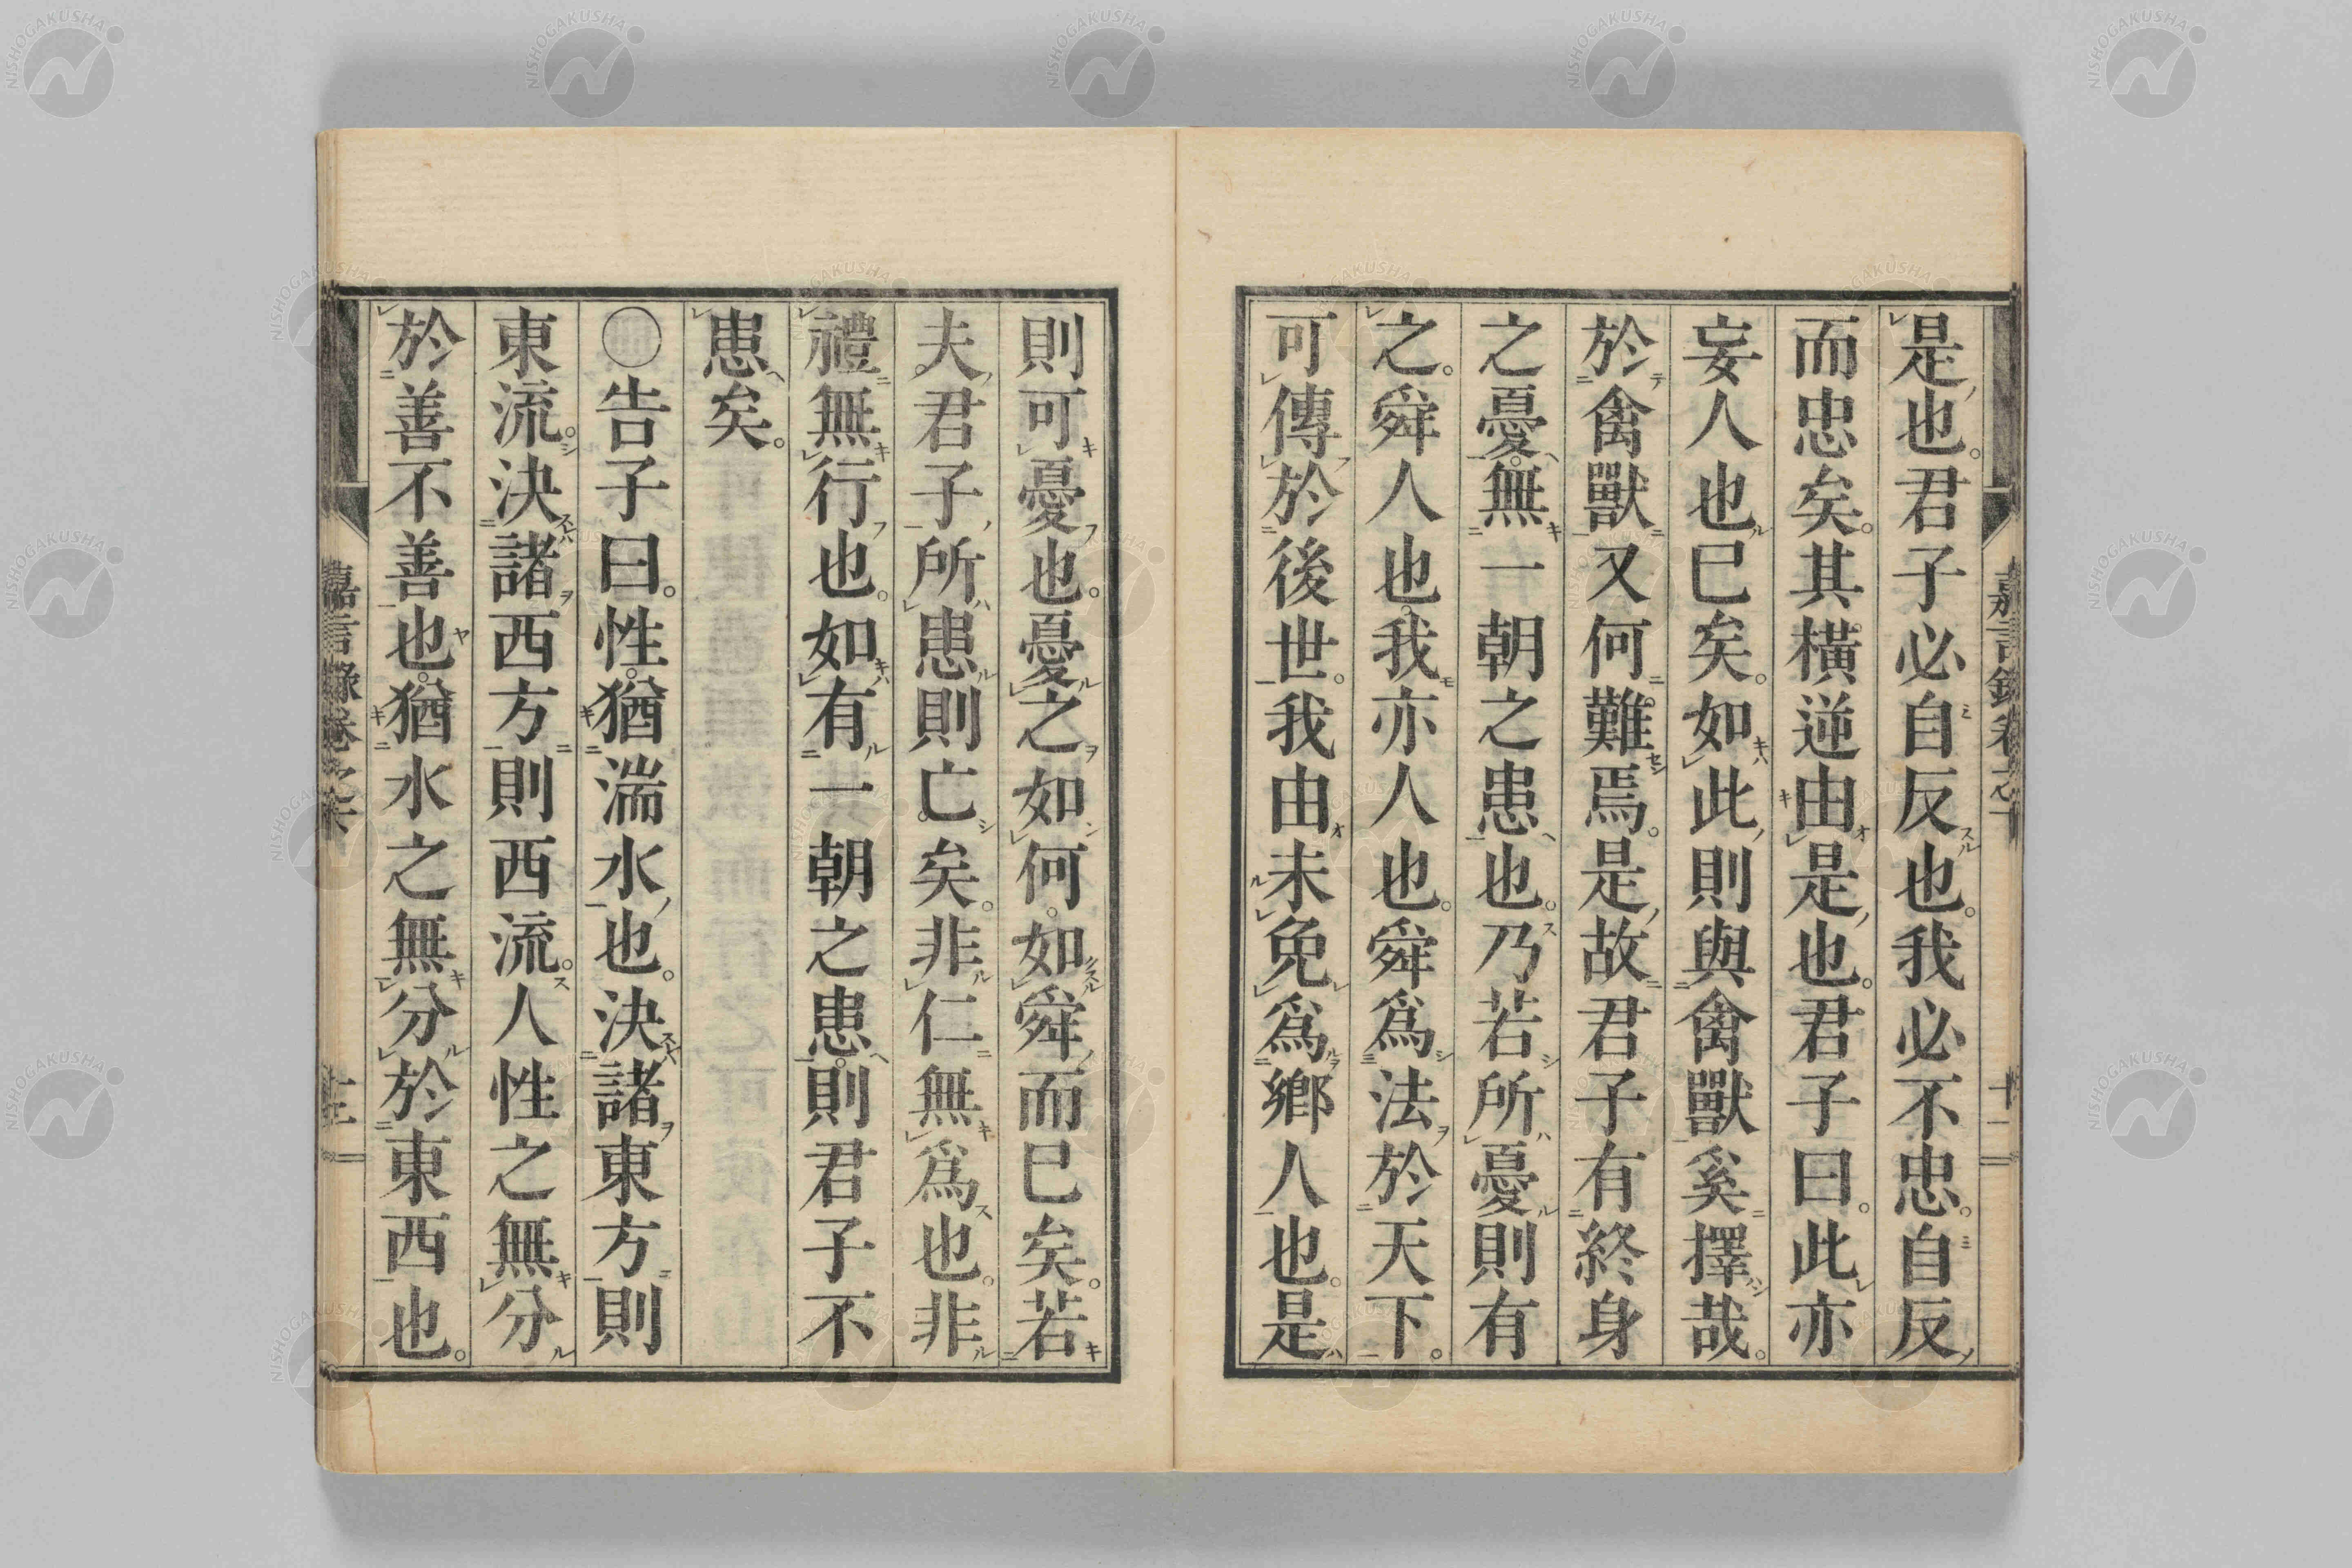 是也。君子必自反也。我必不忠。自反
而忠矣。其橫逆由是也。君子曰。此亦
妄人也已矣。如此則與禽獸奚擇哉。
於禽獸又何難焉。是故君子有終身
之憂。無一朝之患也。乃若所憂則有
之。舜人也。我亦人也。舜爲法於天下。
可傳於後世。我由未免爲鄉人也。是
則可憂也。憂之如何。如舜而已矣。若
夫君子所患則亡矣。非仁無爲也。非
禮無行也。如有一朝之患。則君子不
患矣。
○告子曰。性猶湍水也。決諸東方則
東流。決諸西方則西流。人性之無分
於善不善也。猶水之無分於東西也。
嘉言錄卷之
NISHOGAKUSHA